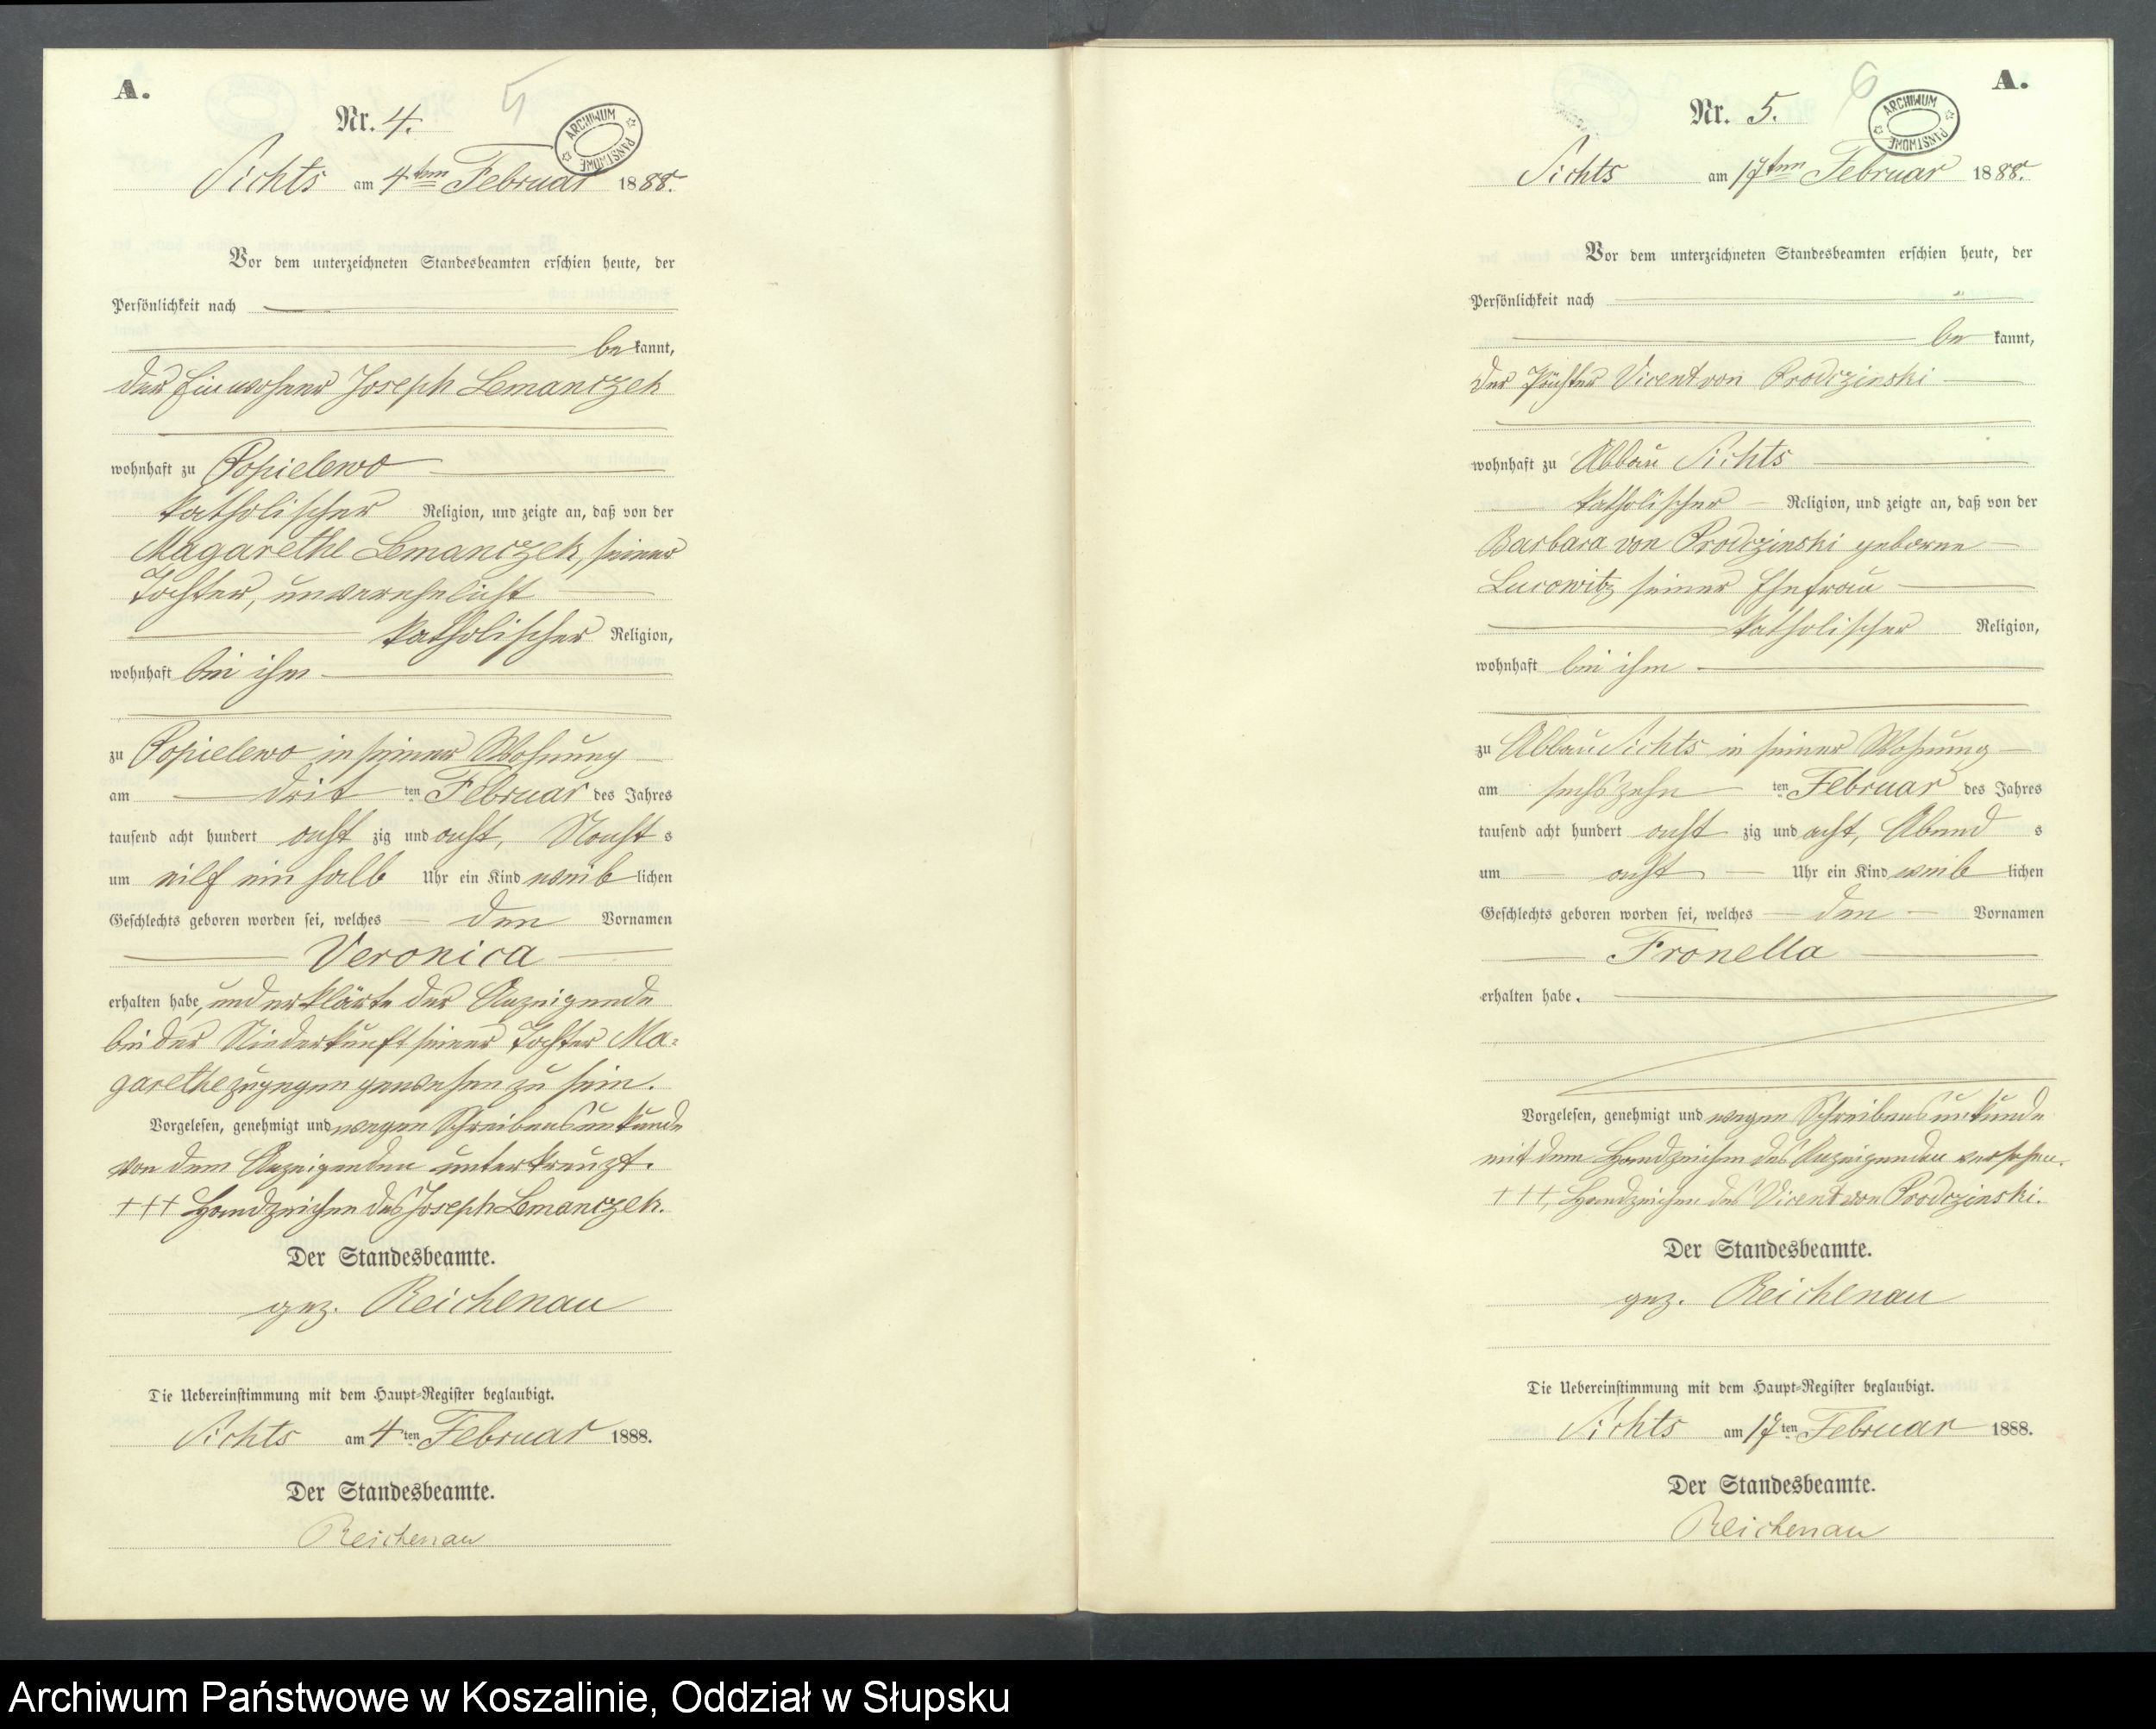 A.
5
Nr. 4.
ARCHIWUM PAŃSTWOWE
Sichts am 4ten Februar 1888.
Vor dem unterzeichneten Standesbeamten erschien heute, der
Persönlichkeit nach
be kannt,
der Einwohner Joseph Lemanczek
wohnhaft zu Popielewo
katholischer Religion, und zeigte an, daß von der
Magarethe Lemanczek, seiner
Tochter, unverehelicht
katholischer Religion,
wohnhaft bei ihm
zu Popielewo in seiner Wohnung
am drit ten Februar des Jahres
tausend acht hundert acht zig und acht, Nacht s
um eilf ein halb Uhr ein Kind weib lichen
Geschlechts geboren worden sei, welches den Vornamen
Veronica
erhalten habe, und erklärte der Anzeigende
bei der Niederkunft seiner Tochter Ma-
garethe zugegen gewesen zu sein.
Vorgelesen, genehmigt und wegen Schreibensunkunde
von dem Anzeigenden unterkreuzt.
+++ Handzeichen des Joseph Lemanczek.
Der Standesbeamte.
gez. Reichenau
Die Uebereinstimmung mit dem Haupt-Register beglaubigt.
Sichts am 4ten Februar 1888.
Der Standesbeamte.
Reichenau
A.
6
Nr. 5.
ARCHIWUM PAŃSTWOWE
Sichts am 17ten Februar 1888.
Vor dem unterzeichneten Standesbeamten erschien heute, der
Persönlichkeit nach
be kannt,
der Pächter Vicent von Prodczinski
wohnhaft zu Abbau Sichts
katholischer Religion, und zeigte an, daß von der
Barbara von Prodczinski geborne
Lucowitz seiner Ehefrau
katholischer Religion,
wohnhaft bei ihm
zu Abbau Sichts in seiner Wohnung
am sechszehn ten Februar des Jahres
tausend acht hundert acht zig und acht, Abend s
um acht Uhr ein Kind weib lichen
Geschlechts geboren worden sei, welches den Vornamen
Fronella
erhalten habe.
Vorgelesen, genehmigt und wegen Schreibensunkunde
mit dem Handzeichen des Anzeigenden versehen.
+++, Handzeichen des Vicent von Prodczinski.
Der Standesbeamte.
gez. Reichenau
Die Uebereinstimmung mit dem Haupt-Register beglaubigt.
Sichts am 17ten Februar 1888.
Der Standesbeamte.
Reichenau
Archiwum Państwowe w Koszalinie, Oddział w Słupsku